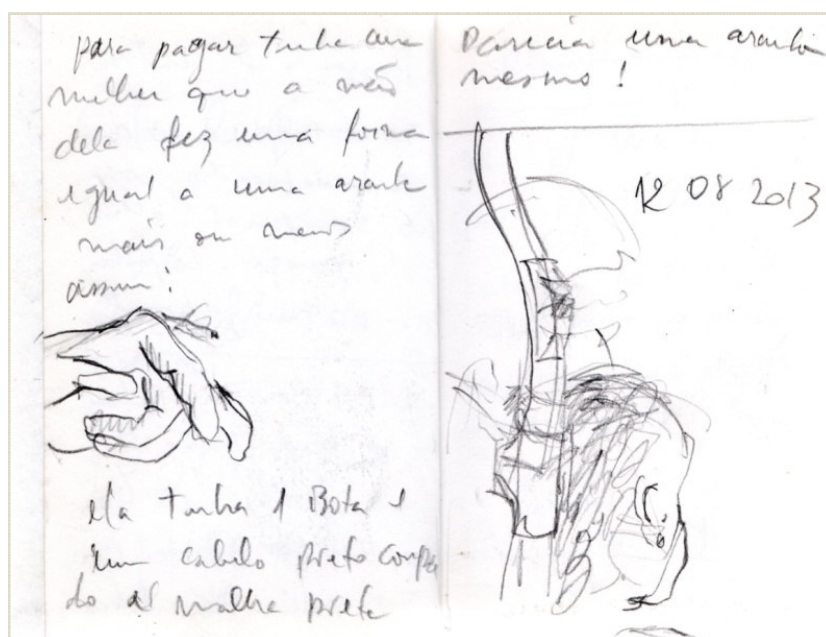 para pagar tinha uma
mulher que a mão
dela fez uma forma
igual a uma aranha
mais ou menos
assim:
ela tinha 1 Bota e
um cabelo preto compri
do e malha preta
Parecia uma aranha
mesmo!
12 08 2013